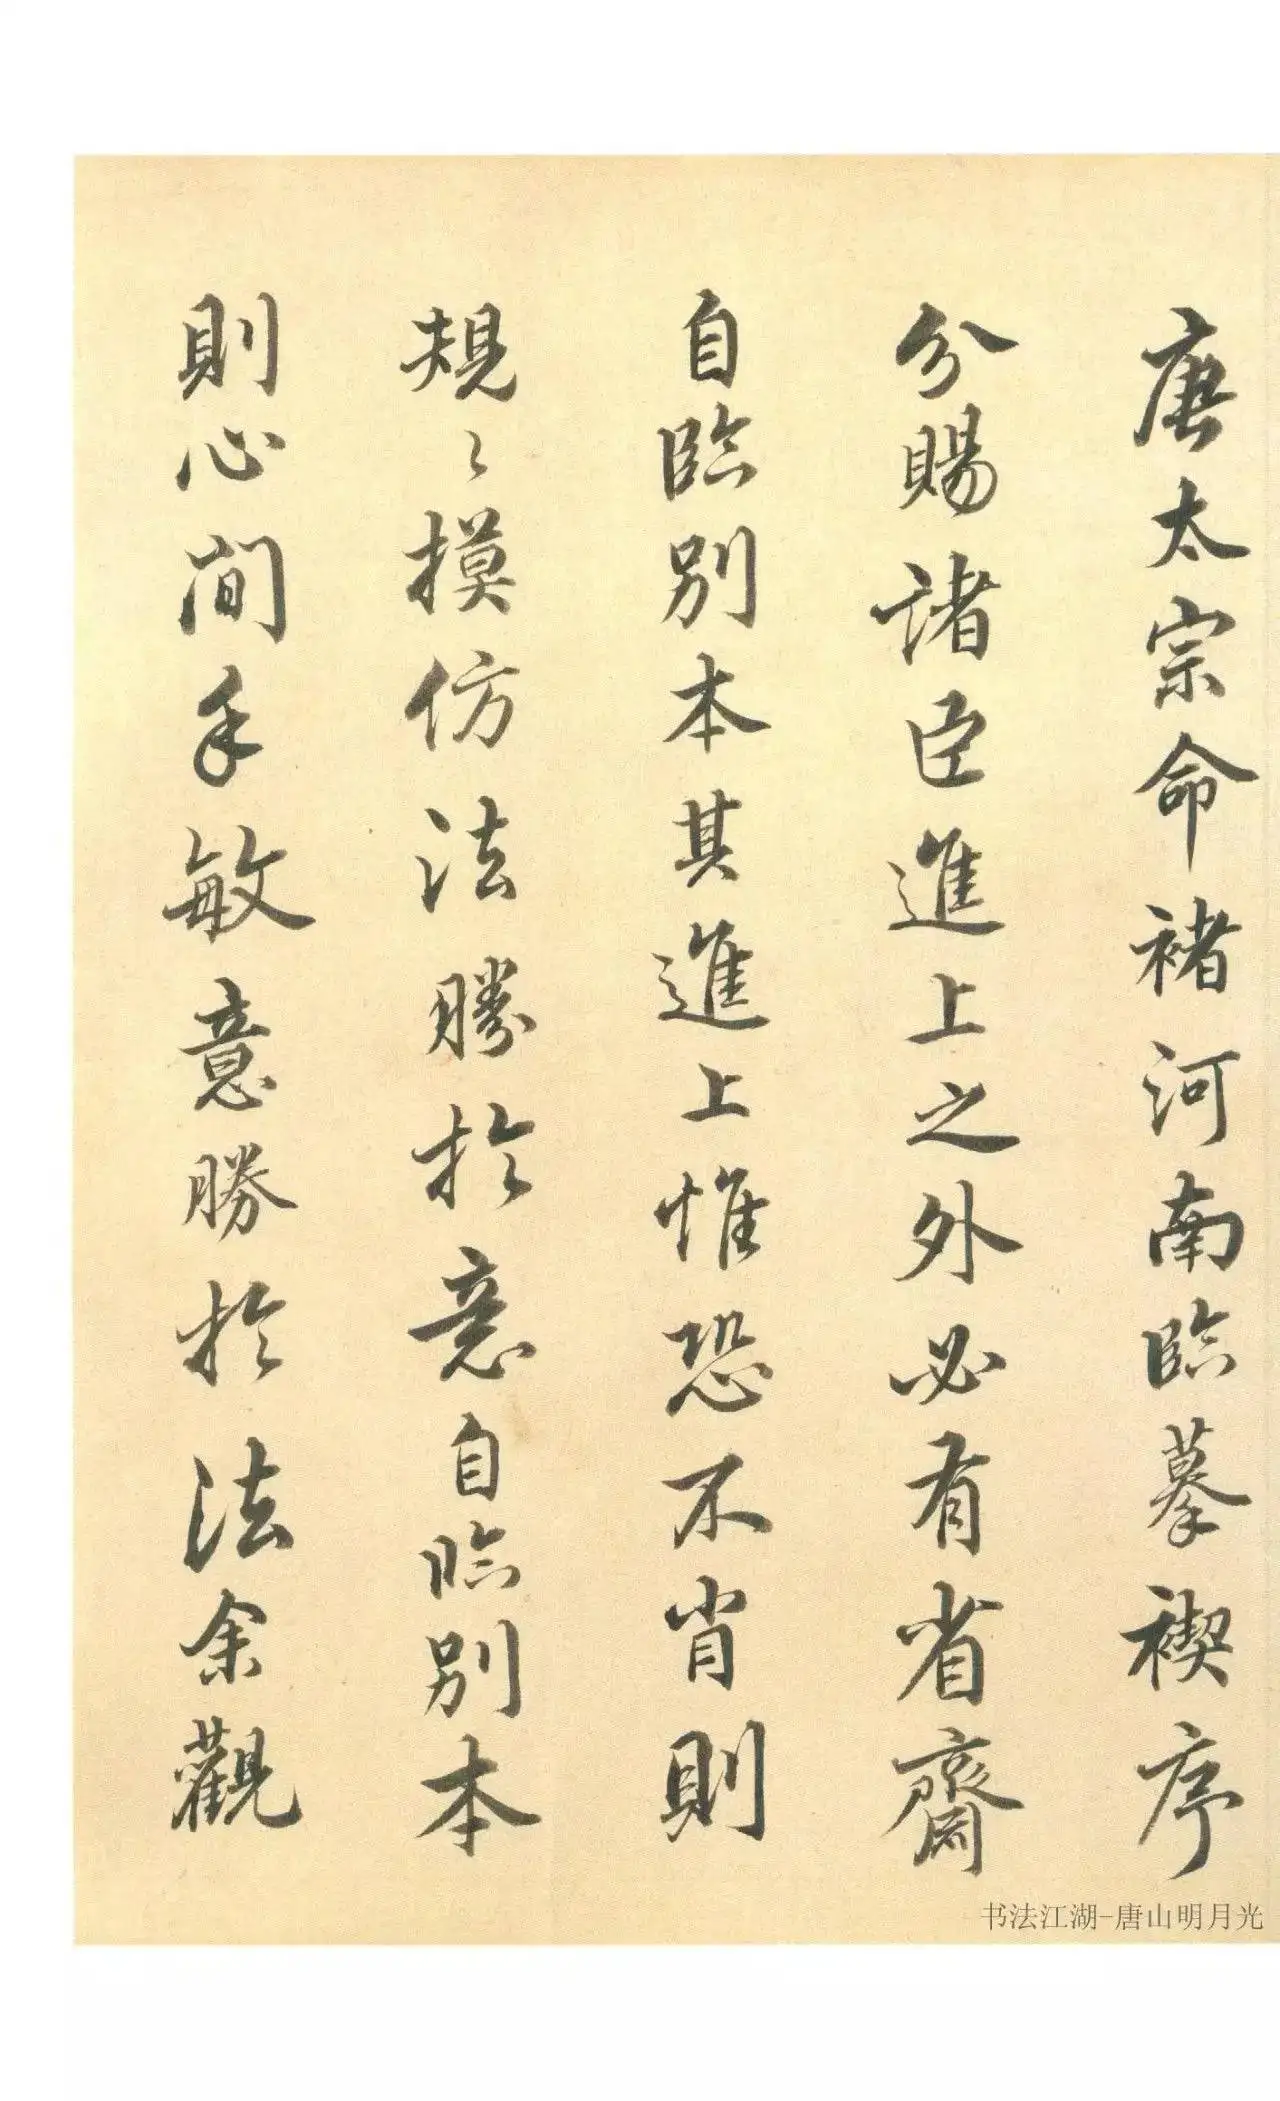 唐太宗命褚河南臨摹禊序
分賜諸臣進上之外必有省齋
自臨別本其進上惟恐不肖則
規〻摸仿法勝於意自臨別本
則心閒手敏意勝於法余觀
书法江湖-唐山明月光